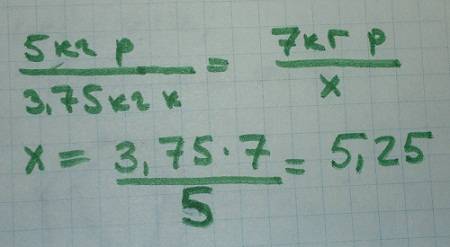 5кг р / 3,75кг к = 7кг р / х
х = 3,75·7 / 5 = 5,25